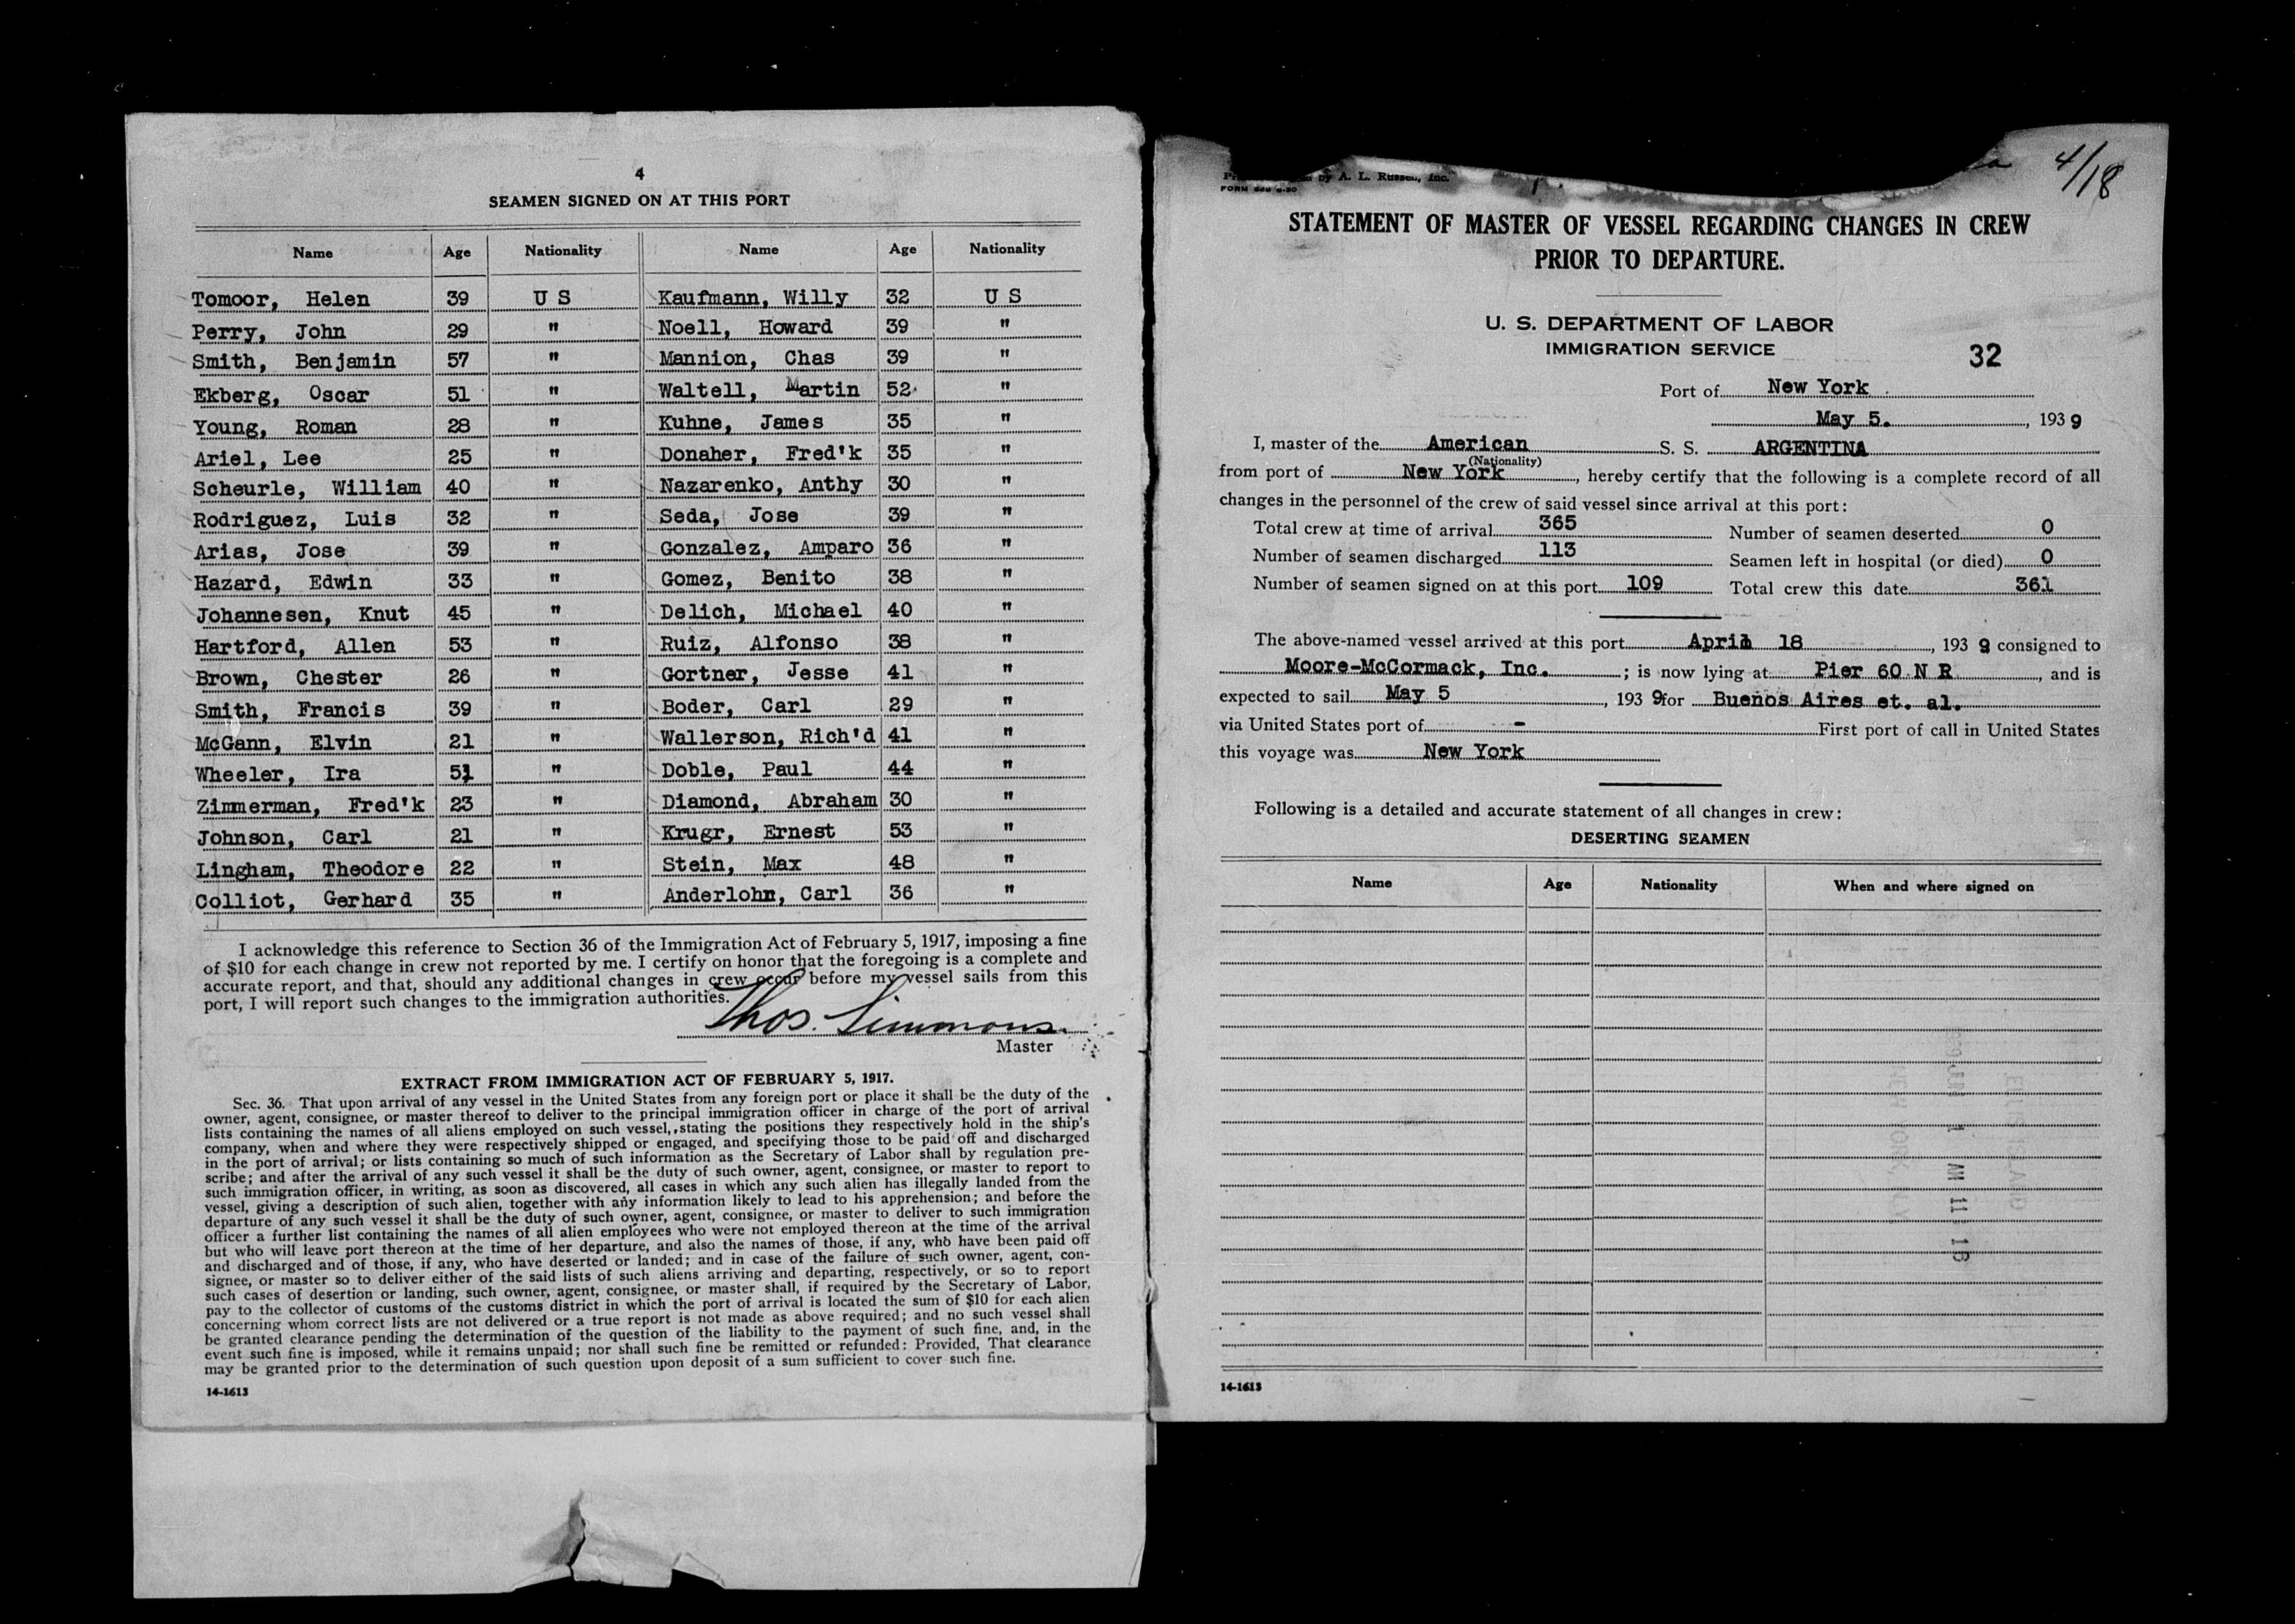 4
SEAMEN SIGNED ON AT THIS PORT
Name Age Nationality Name Age Nationality
Tomoor, Helen 39 U S Kaufmann, Willy 32 U S
Perry, John 29 " Noell, Howard 39 "
Smith, Benjamin 57 " Mannion, Chas 39 "
Ekberg, Oscar 51 " Waltell, Martin 52 "
Young, Roman 28 " Kuhne, James 35 "
Ariel, Lee 25 " Donaher, Fred'k 35 "
Scheurle, William 40 " Nazarenko, Anthy 30 "
Rodriguez, Luis 32 " Seda, Jose 39 "
Arias, Jose 39 " Gonzalez, Amparo 36 "
Hazard, Edwin 33 " Gomez, Benito 38 "
Johannesen, Knut 45 " Delich, Michael 40 "
Hartford, Allen 53 " Ruiz, Alfonso 38 "
Brown, Chester 26 " Gortner, Jesse 41 "
Smith, Francis 39 " Boder, Carl 29 "
McGann, Elvin 21 " Wallerson, Rich'd 41 "
Wheeler, Ira 51 " Doble, Paul 44 "
Zimmerman, Fred'k 23 " Diamond, Abraham 30 "
Johnson, Carl 21 " Krugr, Ernest 53 "
Lingham, Theodore 22 " Stein, Max 48 "
Colliot, Gerhard 35 " Anderlohn, Carl 36 "
I acknowledge this reference to Section 36 of the Immigration Act of February 5, 1917, imposing a fine
of $10 for each change in crew not reported by me. I certify on honor that the foregoing is a complete and
accurate report, and that, should any additional changes in crew occur before my vessel sails from this
port, I will report such changes to the immigration authorities.
Thos. Simmons
Master
EXTRACT FROM IMMIGRATION ACT OF FEBRUARY 5, 1917.
Sec. 36. That upon arrival of any vessel in the United States from any foreign port or place it shall be the duty of the
owner, agent, consignee, or master thereof to deliver to the principal immigration officer in charge of the port of arrival
lists containing the names of all aliens employed on such vessel, stating the positions they respectively hold in the ship's
company, when and where they were respectively shipped or engaged, and specifying those to be paid off and discharged
in the port of arrival; or lists containing so much of such information as the Secretary of Labor shall by regulation pre-
scribe; and after the arrival of any such vessel it shall be the duty of such owner, agent, consignee, or master to report to
such immigration officer, in writing, as soon as discovered, all cases in which any such alien has illegally landed from the
vessel, giving a description of such alien, together with any information likely to lead to his apprehension; and before the
departure of any such vessel it shall be the duty of such owner, agent, consignee, or master to deliver to such immigration
officer a further list containing the names of all alien employees who were not employed thereon at the time of the arrival
but who will leave port thereon at the time of her departure, and also the names of those, if any, who have been paid off
and discharged and of those, if any, who have deserted or landed; and in case of the failure of such owner, agent, con-
signee, or master so to deliver either of the said lists of such aliens arriving and departing, respectively, or so to report
such cases of desertion or landing, such owner, agent, consignee, or master shall, if required by the Secretary of Labor,
pay to the collector of customs of the customs district in which the port of arrival is located the sum of $10 for each alien
concerning whom correct lists are not delivered or a true report is not made as above required; and no such vessel shall
be granted clearance pending the determination of the question of the liability to the payment of such fine, and, in the
event such fine is imposed, while it remains unpaid; nor shall such fine be remitted or refunded: Provided, That clearance
may be granted prior to the determination of such question upon deposit of a sum sufficient to cover such fine.
14-1613
by A. L. Russell, Inc.
FORM
4/18
STATEMENT OF MASTER OF VESSEL REGARDING CHANGES IN CREW
PRIOR TO DEPARTURE.
U. S. DEPARTMENT OF LABOR
IMMIGRATION SERVICE
32
Port of New York
May 5. , 1939
I, master of the American S. S. ARGENTINA
(Nationality)
from port of New York , hereby certify that the following is a complete record of all
changes in the personnel of the crew of said vessel since arrival at this port:
Total crew at time of arrival 365 Number of seamen deserted 0
Number of seamen discharged 113 Seamen left in hospital (or died) 0
Number of seamen signed on at this port 109 Total crew this date 361
The above-named vessel arrived at this port April 18 , 1939 consigned to
Moore-McCormack, Inc. ; is now lying at Pier 60 N R , and is
expected to sail May 5 , 1939 for Buenos Aires et. al.
via United States port of - First port of call in United States
this voyage was New York
Following is a detailed and accurate statement of all changes in crew:
DESERTING SEAMEN
Name Age Nationality When and where signed on
ELLIS ISLAND
AM 11 16
14-1613